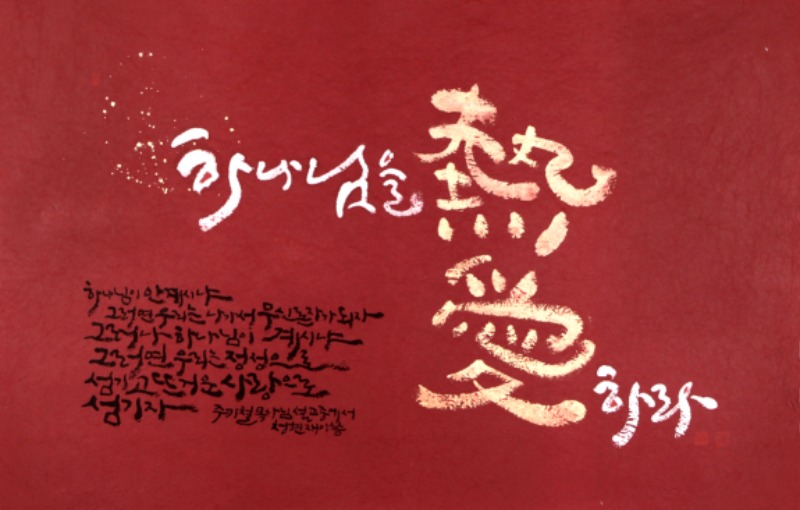 하나님을
熱愛
하라
하나님이 안계시냐
그러면 우리는 나가서 무신론자가 되자
그러나 하나님이 계시냐
그러면 우리는 정성으로
섬기고 뜨거운 사랑으로
섬기자
주기철 목사님 설교중에서